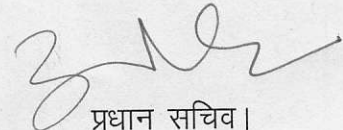 प्रधान सचिव।